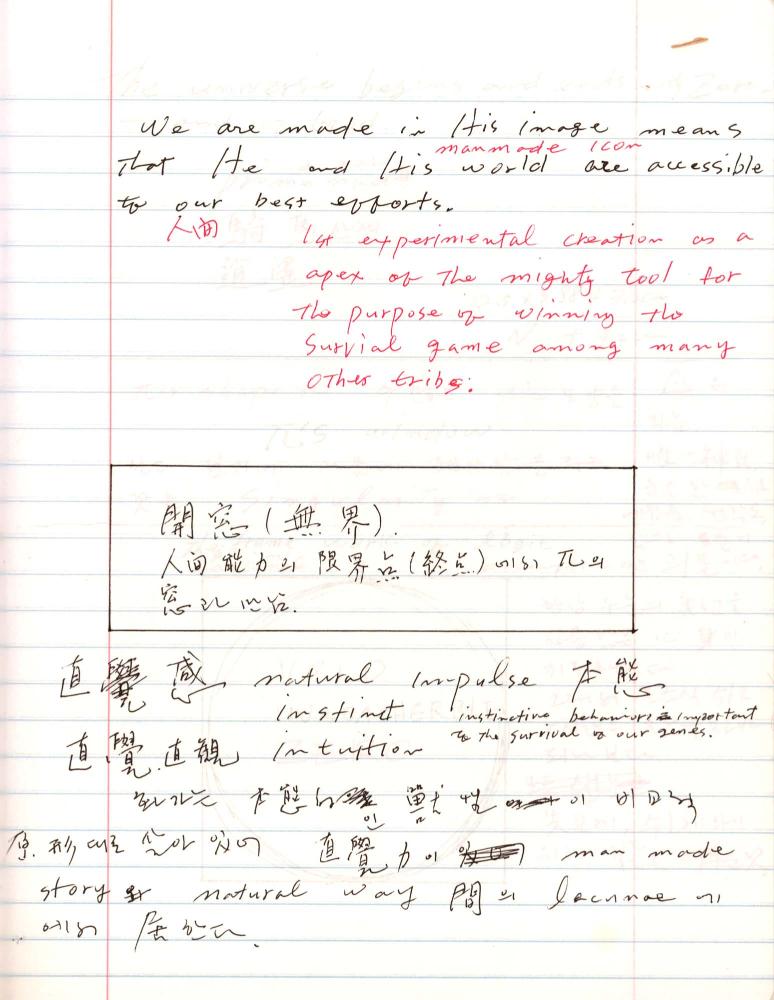 We are made in His image means
manmade icon
that He and His world are accessible
to our best efforts.
人間 1st experimental creation as a
apex of the mighty tool for
the purpose of winning the
Survial game among many
other tribs.
開窓(無界).
人間 能力의 限界点(終点)에서 π의
窓
直覺 感 natural impulse 本能
instinct instinctive behavior is important
to the survival of our genes.
直覺.直観 intuition
화가는 本態的인 獸性이 비교적
原形대로 살아 있어 直覺力이 man made
story natural way 間의 lacunae에
에서 居한다.